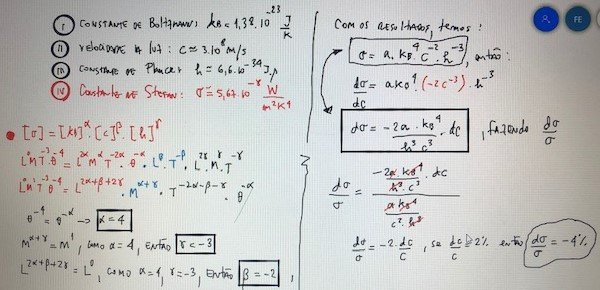 I CONSTANTE DE BOLTZMANN: kB = 1,38.10^-23 J/K
II VELOCIDADE DA LUZ: C ≃ 3.10^8 m/s
III CONSTANTE DE PLANCK: h ≃ 6,6.10^-34 J.s
IV CONSTANTE DE STEFAN: σ ≃ 5,67.10^-8 W/m²K⁴
[σ] = [kB]^α . [c]^β . [h]^γ
L^0 M^1 T^-3 θ^-4 = L^2α M^α T^-2α . θ^-α . L^β . T^-β . L^2γ . M^γ . T^-γ
L^0 M^1 T^-3 θ^-4 = L^2α+β+2γ . M^α+γ . T^-2α-β-γ . θ^-α
θ^-4 = θ^-α -> α = 4
M^α+γ = M^1, COMO α = 4, ENTÃO γ = -3
L^2α+β+2γ = L^0, COMO α = 4, γ = -3, ENTÃO β = -2,
COM OS RESULTADOS, TEMOS:
σ = a. kB^4 . C^-2 . h^-3, ENTÃO:
dσ/dc = a kB^4 . (-2c^-3) . h^-3
dσ = -2a . kB^4 / h^3 c^3 . dc, FAZENDO dσ/σ
dσ/σ = (-2a. kB^4 / h^3. c^3 . dc) / (a kB^4 / c^2 . h^3)
dσ/σ = -2. dc/c, SE dc/c = 2% ENTÃO dσ/σ = -4%
FE